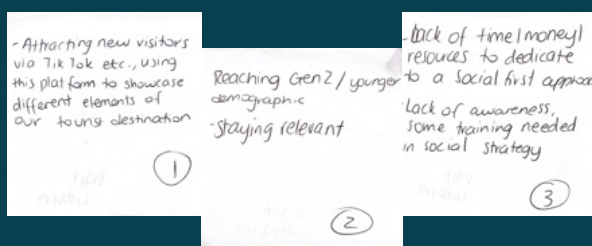 - Attracting new visitors
via Tik Tok etc., using
this platform to showcase
different elements of
our tourist destination
1
Reaching Gen Z / younger
demographic
- Staying relevant
2
- Lack of time/money/
resources to dedicate
to a social first
- Lack of awareness,
some training needed
in social strategy
3